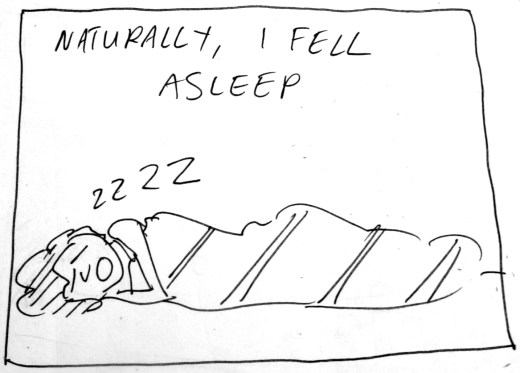 NATURALLY, I FELL
ASLEEP
ZZZZ